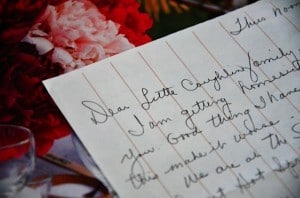 Thurs noon
Dear Little Coughlin Family,
I am getting homesick
you. Good thing I have
this make is worse.
We are at the S